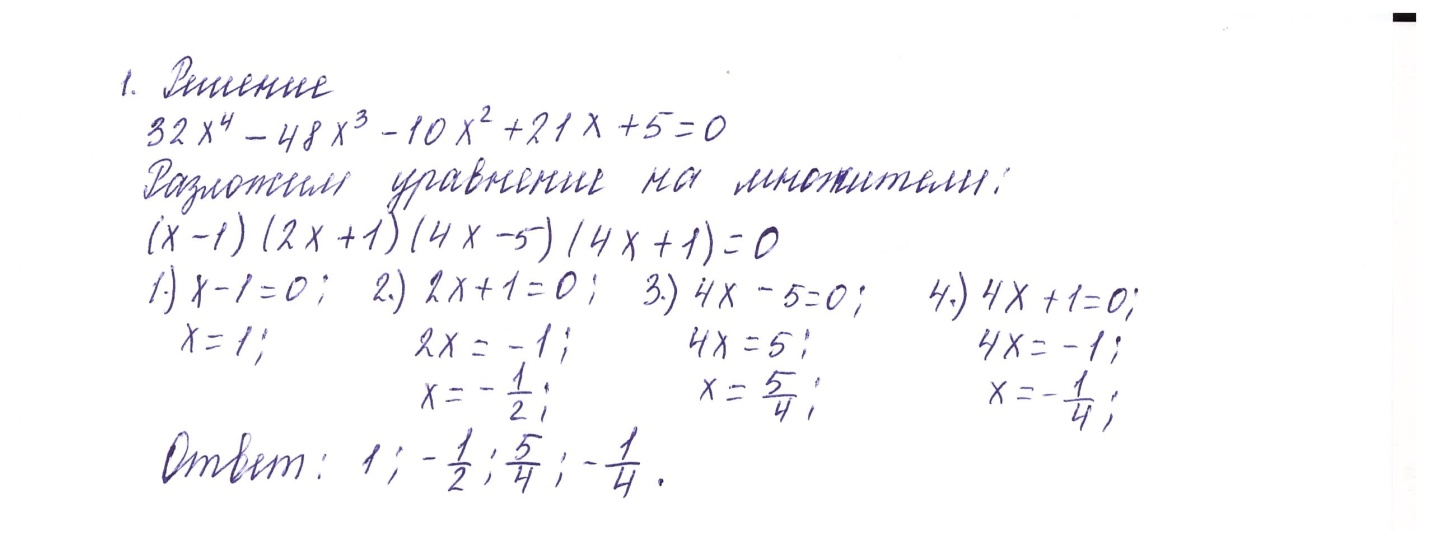 1. Решение
32x⁴ - 48x³ - 10x² + 21x + 5 = 0
Разложим уравнение на множители:
(x - 1) (2x + 1) (4x - 5) (4x + 1) = 0
1.) x - 1 = 0; 2.) 2x + 1 = 0; 3.) 4x - 5 = 0; 4.) 4x + 1 = 0;
x = 1; 2x = -1; 4x = 5; 4x = -1;
x = -1/2; x = 5/4; x = -1/4;
Ответ: 1; -1/2; 5/4; -1/4.